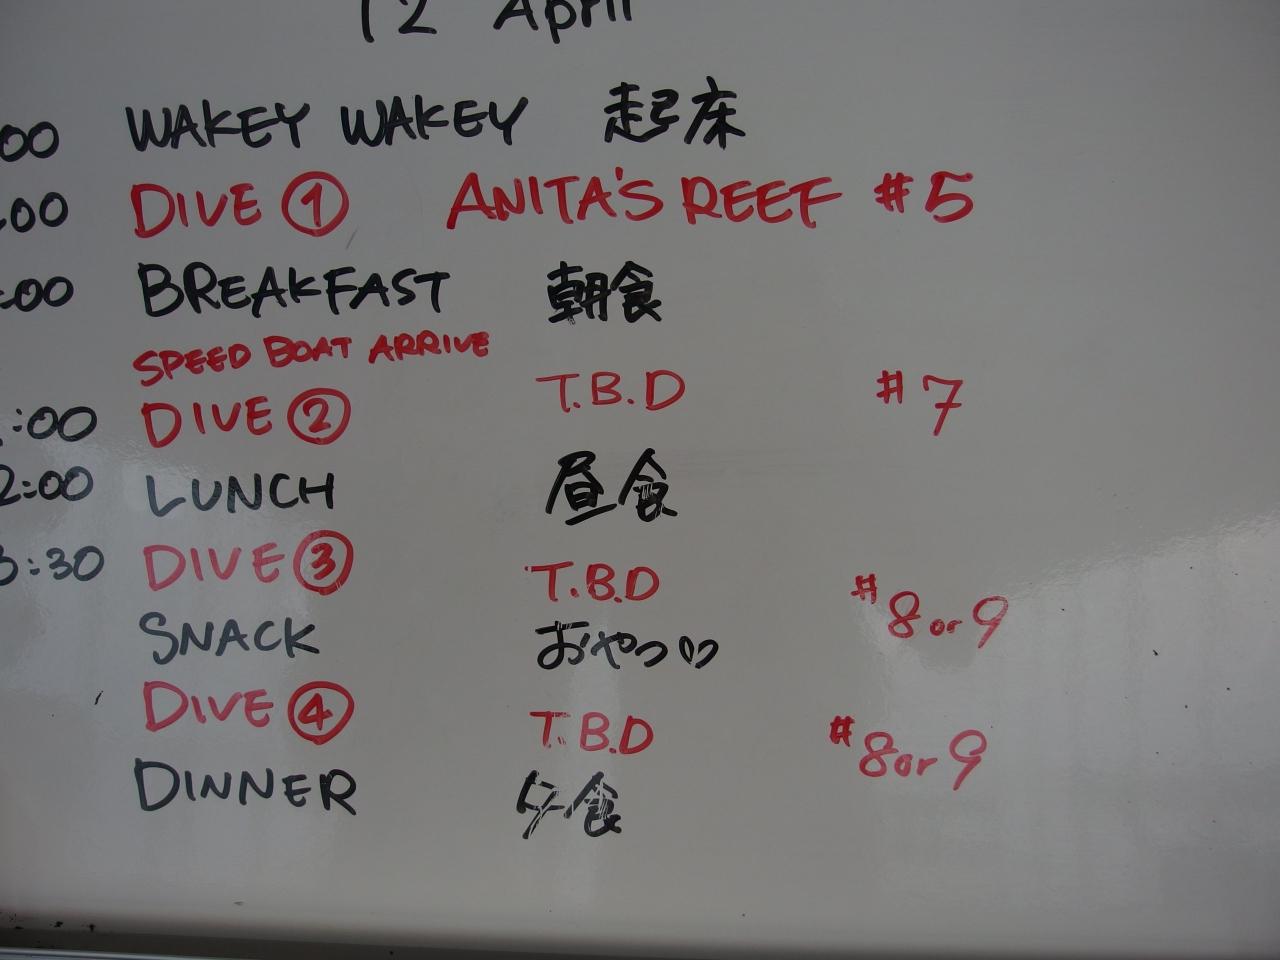 12 April
00 WAKEY WAKEY 起床
:00 DIVE ① ANITA'S REEF #5
:00 BREAKFAST 朝食
SPEED BOAT ARRIVE
:00 DIVE ② T.B.D #7
2:00 LUNCH 昼食
3:30 DIVE ③ T.B.D #8 or 9
SNACK おやつ
DIVE ④ T.B.D #8 or 9
DINNER 夕食